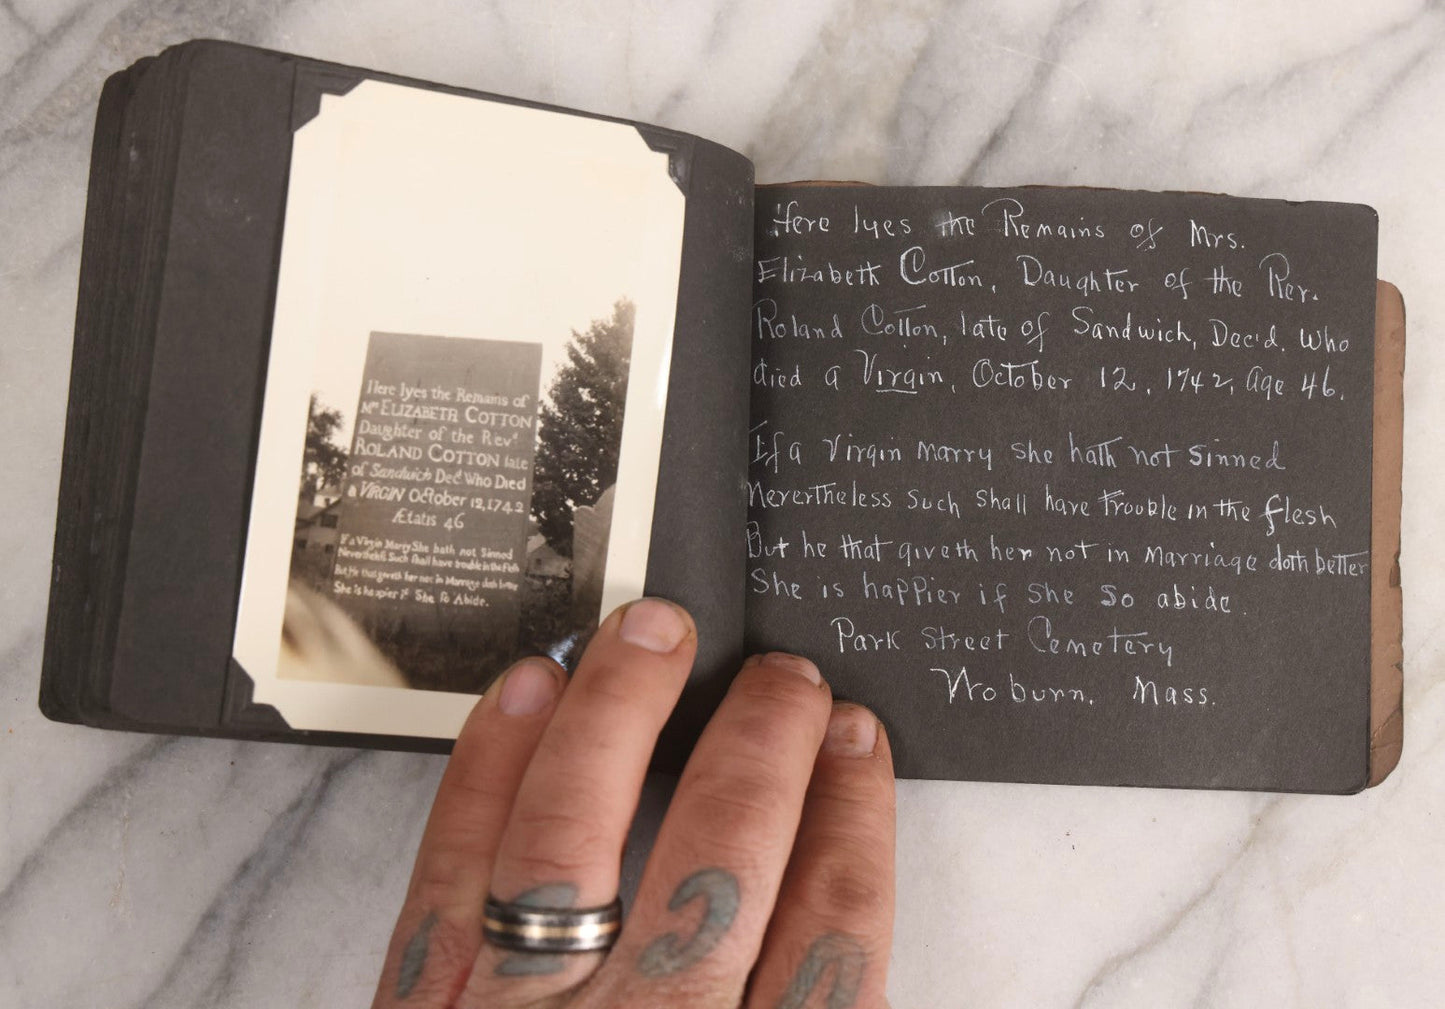 Here lyes the Remains of
Mrs ELIZABETH COTTON
Daughter of the Revd
ROLAND COTTON late
of Sandwich Decd Who Died
a VIRGIN October 12, 1742
Ætatis 46
If a Virgin Marry She hath not Sinned
Nevertheless Such Shall have trouble in the Flesh
But He that giveth her not in Marriage doth better
She is happier if She So Abide.
Here lyes the Remains of Mrs.
Elizabeth Cotton, Daughter of the Rev.
Roland Cotton, late of Sandwich, Dec'd. Who
died a Virgin, October 12, 1742, Age 46.
If a Virgin Marry She hath not Sinned
Nevertheless Such Shall have trouble in the flesh
But he that giveth her not in Marriage doth better
She is happier if She So abide.
Park Street Cemetery
Woburn, Mass.